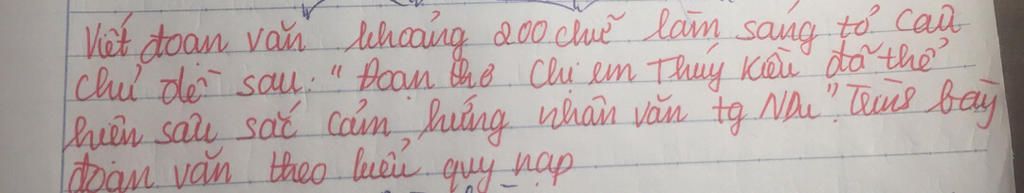 Viết đoạn văn khoảng 200 chữ làm sáng tỏ câu
chủ đề sau: "Đoạn thơ Chị em Thuý Kiều đã thể
hiện sâu sắc cảm hứng nhân văn tg NDu". Trình bày
đoạn văn theo kiểu quy nạp